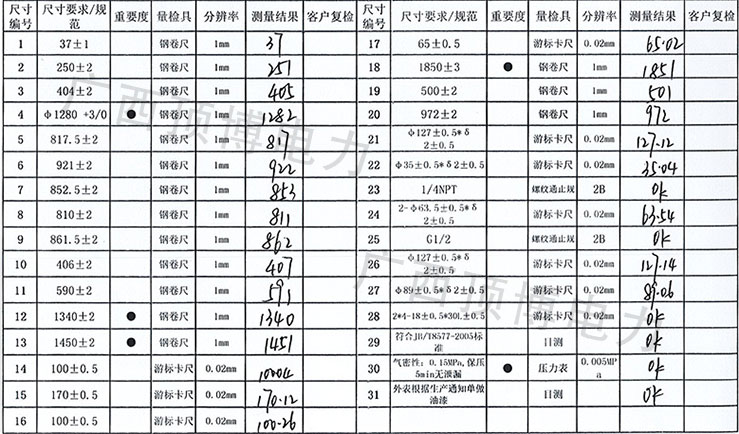 尺寸编号 尺寸要求/规范 重要度 量检具 分辨率 测量结果 客户复检
1 37±1 钢卷尺 1mm 37
2 250±2 钢卷尺 1mm 251
3 404±2 钢卷尺 1mm 405
4 φ1280 +3/0 ● 钢卷尺 1mm 1282
5 817.5±2 钢卷尺 1mm 817
6 921±2 钢卷尺 1mm 922
7 852.5±2 钢卷尺 1mm 853
8 810±2 钢卷尺 1mm 811
9 861.5±2 钢卷尺 1mm 862
10 406±2 钢卷尺 1mm 407
11 590±2 钢卷尺 1mm 591
12 1340±2 ● 钢卷尺 1mm 1340
13 1450±2 ● 钢卷尺 1mm 1451
14 100±0.5 游标卡尺 0.02mm 100.04
15 170±0.5 游标卡尺 0.02mm 170.12
16 100±0.5 游标卡尺 0.02mm 100.26
尺寸编号 尺寸要求/规范 重要度 量检具 分辨率 测量结果 客户复检
17 65±0.5 游标卡尺 0.02mm 65.02
18 1850±3 ● 钢卷尺 1mm 1851
19 500±2 钢卷尺 1mm 501
20 972±2 钢卷尺 1mm 972
21 φ127±0.5*δ
2±0.5 游标卡尺 0.02mm 127.12
22 φ35±0.5*δ2±0.5 游标卡尺 0.02mm 35.04
23 1/4NPT 螺纹通止规 2B ok
24 2-φ63.5±0.5*δ
2±0.5 游标卡尺 0.02mm 63.54
25 G1/2 螺纹通止规 2B ok
26 φ127±0.5*δ
2±0.5 游标卡尺 0.02mm 127.14
27 φ89±0.5*δ2±0.5 游标卡尺 0.02mm 89.06
28 2*4-18±0.5*30L±0.5 游标卡尺 0.02mm ok
29 符合JB/T8577-2005标
准 目测 ok
30 气密性：0.15MPa,保压
5min无泄漏 ● 压力表 0.005MP
a ok
31 外表根据生产通知单做
油漆 目测 ok
广西顶博电力
广西顶博电力